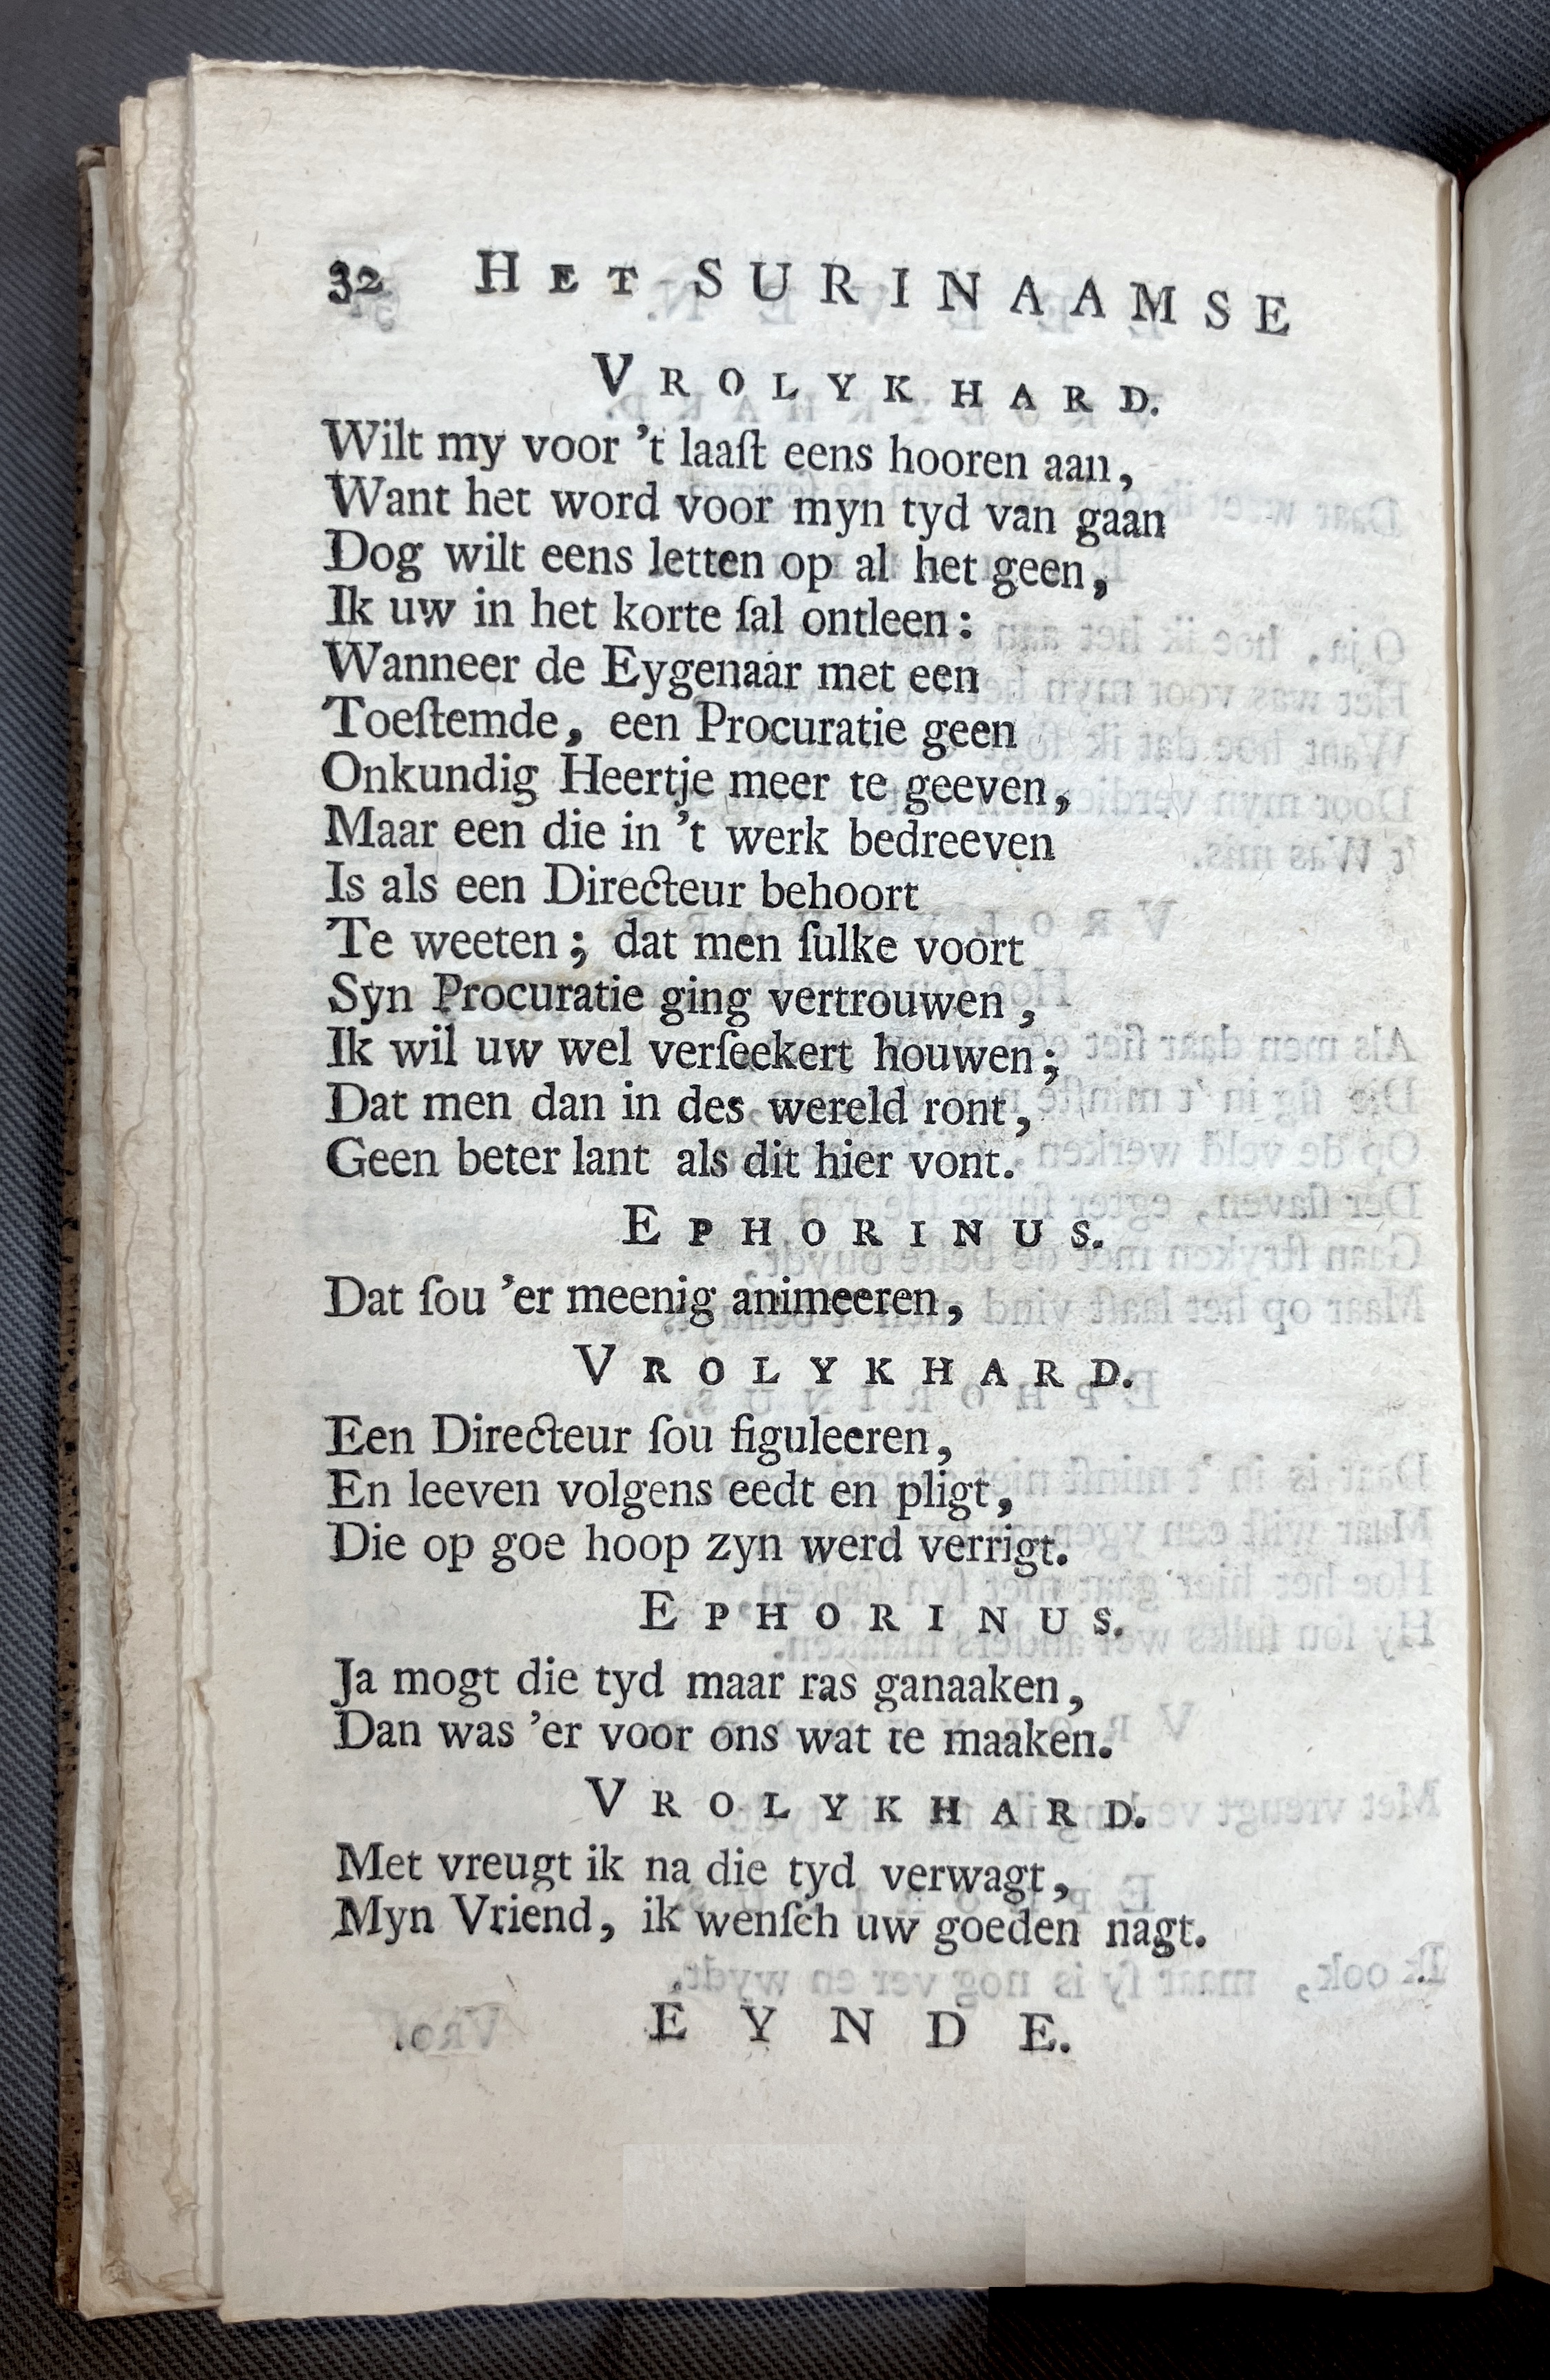 32 HET SURINAAMSE
VROLYKHARD.
Wilt my voor 't laaſt eens hooren aan,
Want het word voor myn tyd van gaan
Dog wilt eens letten op al het geen,
Ik uw in het korte ſal ontleen:
Wanneer de Eygenaar met een
Toeſtemde, een Procuratie geen
Onkundig Heertje meer te geeven,
Maar een die in 't werk bedreeven
Is als een Directeur behoort
Te weeten; dat men ſulke voort
Syn Procuratie ging vertrouwen,
Ik wil uw wel verſeekert houwen;
Dat men dan in des wereld ront,
Geen beter lant als dit hier vont.
EPHORINUS.
Dat ſou 'er meenig animeeren,
VROLYKHARD.
Een Directeur ſou figuleeren,
En leeven volgens eedt en pligt,
Die op goe hoop zyn werd verrigt.
EPHORINUS.
Ja mogt die tyd maar ras ganaaken,
Dan was 'er voor ons wat te maaken.
VROLYKHARD.
Met vreugt ik na die tyd verwagt,
Myn Vriend, ik wenſch uw goeden nagt.
EYNDE.